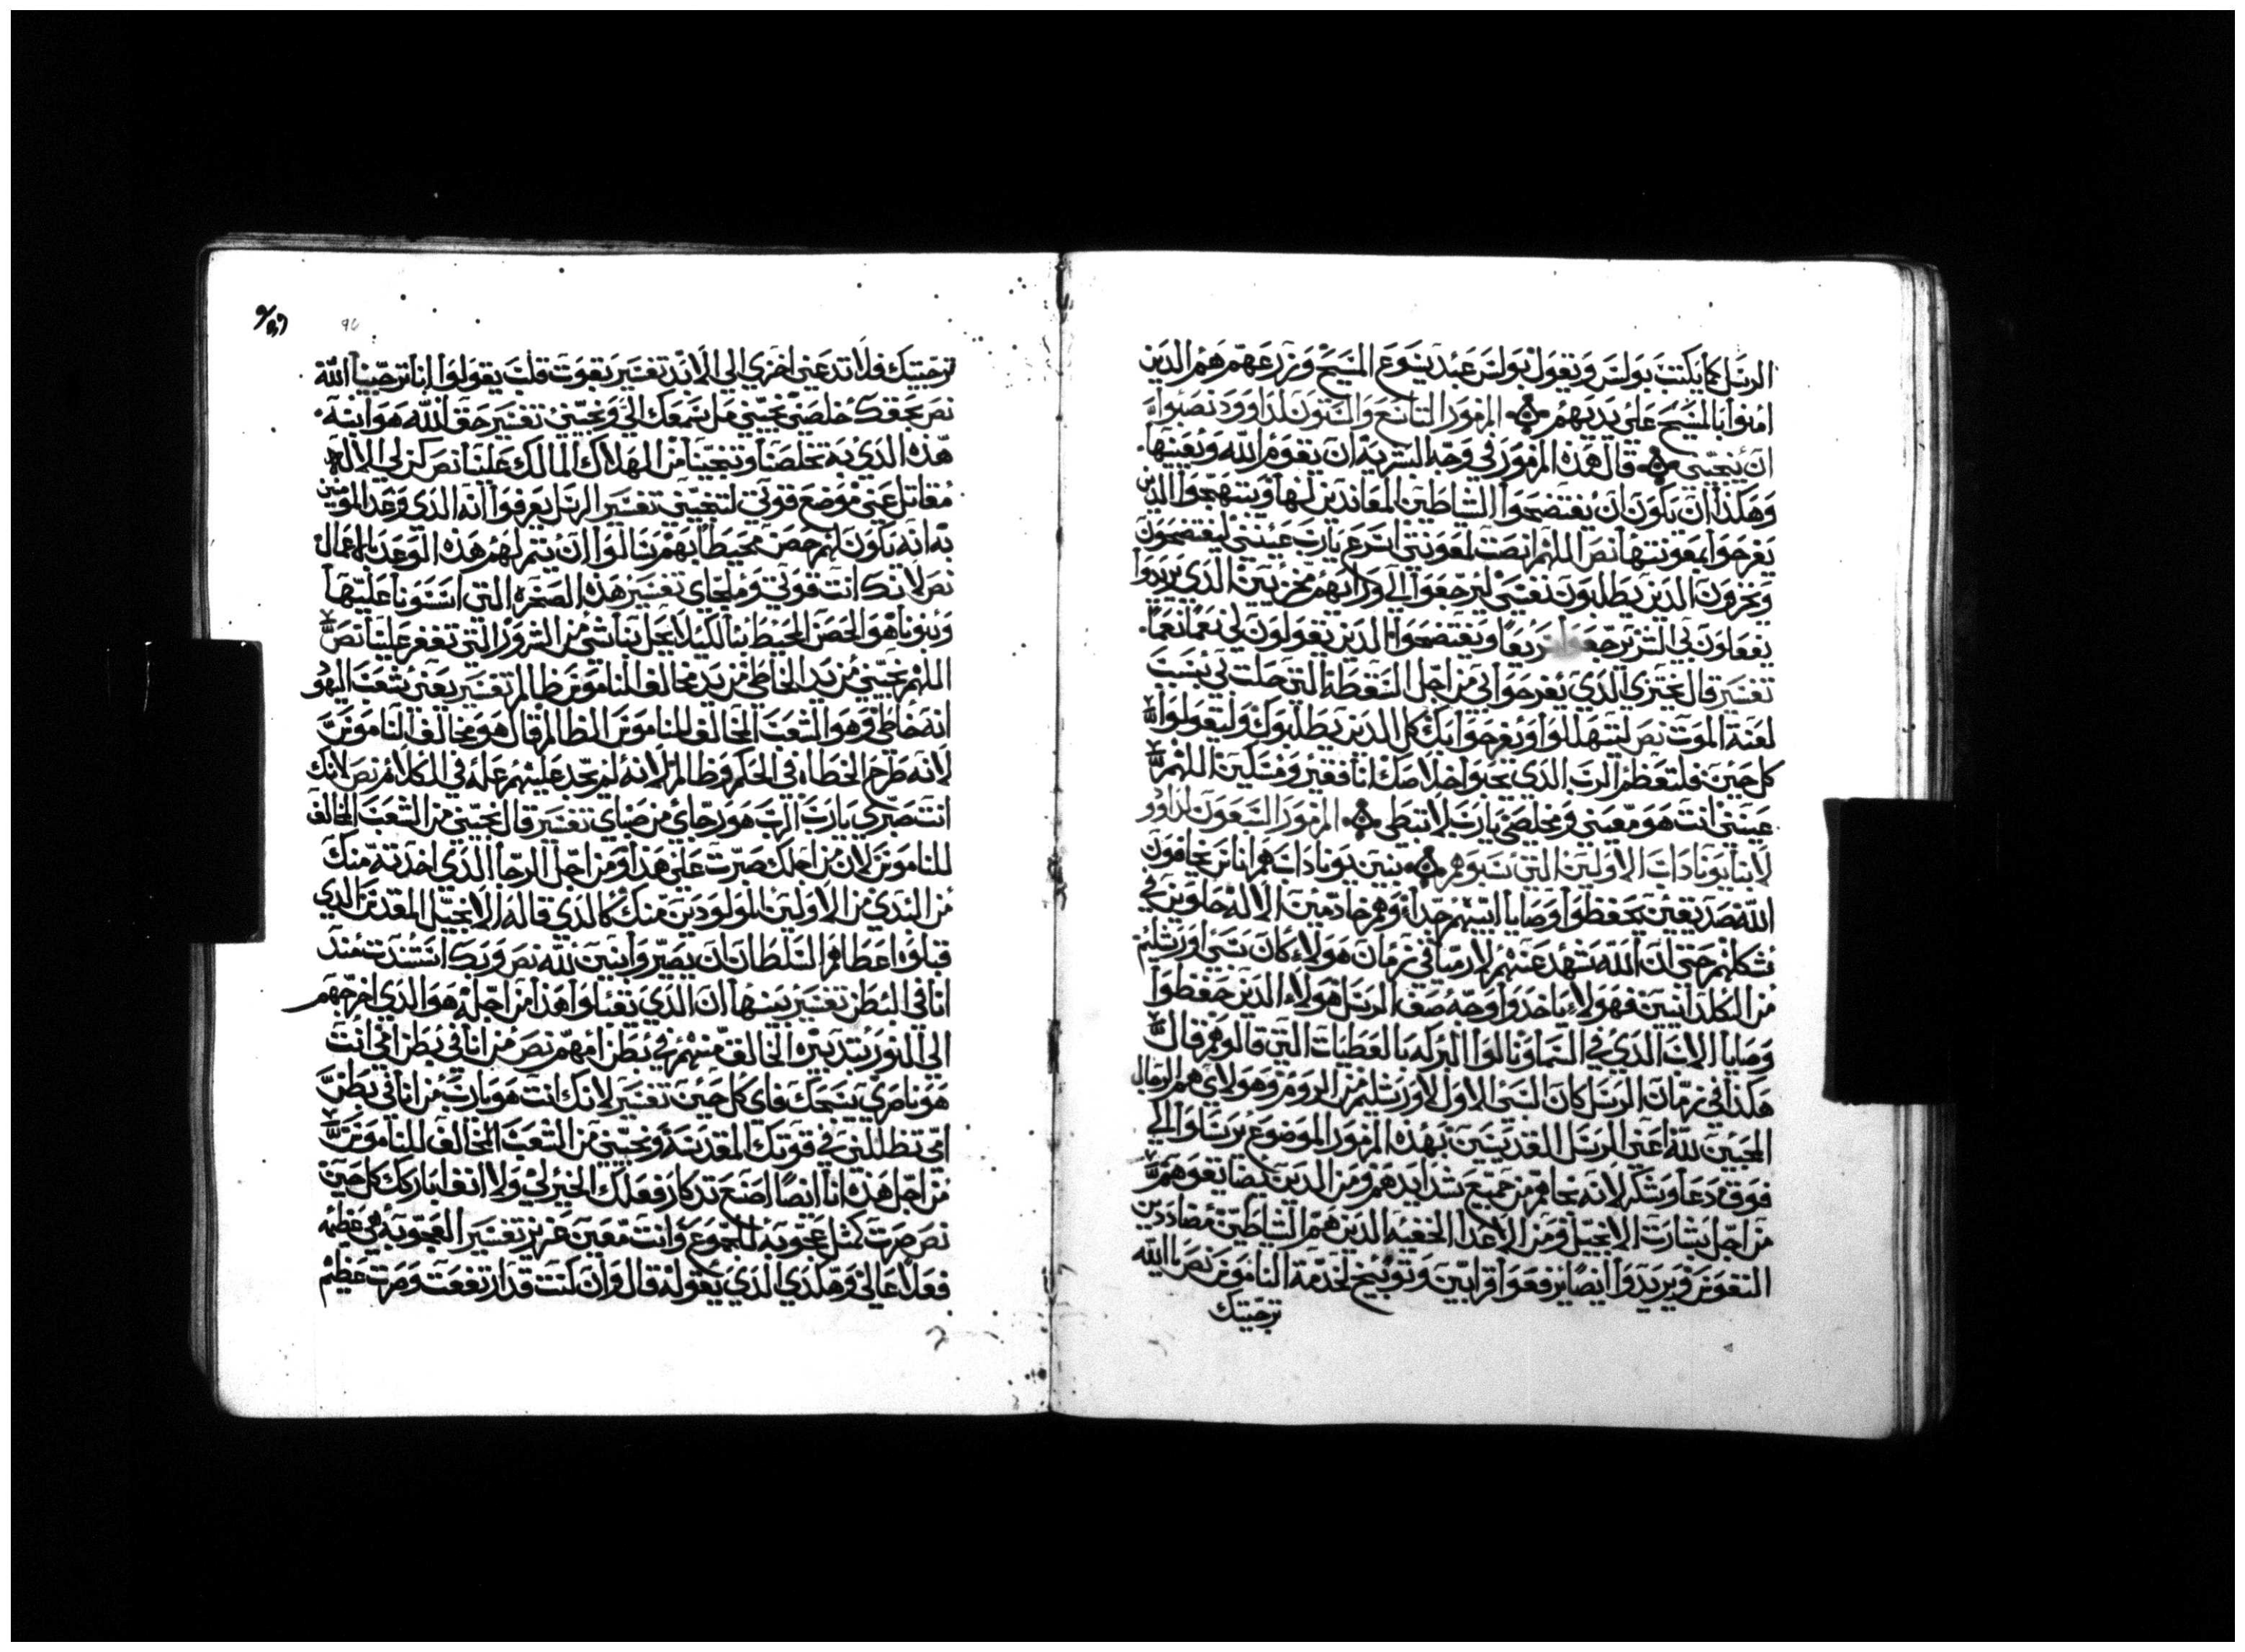 الرسل كما يكتب بولس ويقول بولس عبد يسوع المسيح وزرعهم هم الذين
امنوا بالمسيح على يديهم المزمور التاسع والستون لداوود نصبوا
ان ينجيني قال هذه المزمور في وجه البشرية ان يقوم الله ويعينها
وهكذا ان يكون ان يفتضحوا الشاطين المعاندين لنها ويتبهجوا الذين
يفرحوا بمعونتها نص اللهم انصت لمعونتي اسرع يارب عينني ليفتضحون
ويخزون الذين يطلبون نفسي ليرجعوا الي ورايهم مخزيين الذي يريدوا
يفعلون لي الشر يرجعوا سريعا ويفتضحوا الذين يقولون لي نعما نعما
تفسير قال يختزي الذي يفرحوا بي من اجل السقطة التي حلت بي بسبب
لعنة الموت نص ليتهللوا ويفرحوا بك كل الذين يطلبوك وليقولوا
كل حين فليتعظم الرب الذي يحبوا خلاصك انا فقير ومسكين اللهم
عينني انت هو معيني ومخلصي يارب لا تبطي المزمور السبعون لداوود
لابنا يوناداب الاولين التي سبوهم بنين يوناداب هم اناس يخافون
الله صديقين يحفظوا وصايا ابيهم جدا وهم خادمين الاله حلوين في
شكلهم حتى ان الله شهد عنهم لارميا في زمان هولاء كان سبي اورشليم
من الكلدانيين فهولاء ياخذوا وجه صف الرسل هولاء الذين حفظوا
وصايا الاب الذي في السما ونالوا البركه بالعطيات التي قالوهم قال
هكذا في زمان الرسل كان السبي الاول لاورشليم من الروم وهولاي هم الرجال
المحبين لله اعني الرسل القديسين بهذه المزمور الموضوع يرسلوا الي
فوق دعا وشكر لانه نجاهم من جميع شدايدهم ومن الذين يضايقوهم
من اجل بشارت الانجيل ومن الاعدا الخفيه الذين هم الشاطين مضاددين
النفوس ويريدوا ايضا يرفعوا قرابين وتوبيخ لخدمة الناموس نص يا الله
ترجيتك
ترجيتك فلا تدعني اخزي الى الابد تفسير يقوت قلب يقولوا اننا ترجينا الله
نص بحقك خلصني نجيني مل سمعك الي ونجيني تفسير حق الله هو ابنه
هذه الذي به تخلصنا وتنجينا من الهلاك المالك علينا نص كن لي الاله
مقاتل عني موضع قوتي لتنجيني تفسير الرسل يعرفوا انه الذي وعد المومنين
به انه يكون لهم حصن محيطا بهم سالوا ان يتم لهم هذه الوعد بالاعمال
نص لانك انت قوتي وملجاي تفسير هذه الصخره التي استنونا عليها
وبنونا هو الحصن المحيط بنا لكيلا يحل بنا شي من الشرور التي تفغر علينا نص
اللهم نجيني من يد الخاطي من يد مخالف الناموس ظالم تفسير يعني بشعب اليهود
انه خاطي وهو الشعب المخالف للناموس الظالم قال هو مخالف الناموس
لانه طرح الخطاه في الحكم وظالم لانه لم يجد عليهم عمله في الكلام نص لانك
انت صبري يارب الرب هو رجاي من صباي تفسير قال نجيني من الشعب المخالف
للناموس لان من اجلك صبرت على هذا ومن اجل الرجا الذي اخذته منك
من البدي من الاولين المولودين منك كالذي قاله الانجيل المقدس الذي
قبلوه اعطاهم السلطان ان يصيروا بنين لله نص وبك استندت منذ
انا في البطن تفسير بينها ان الذي يقبلوا هذا من اجله هو الذي اخرجهم
الى النور بتدبيره الخالق منهم في بطن امهم نص من انا في بطن امي انت
هو ناصري بسبحك فاي كل حين تفسير لانك انت هو يارب من انا في بطن
امي تظللني في قوتك المقدسة ونجيني من الشعب المخالف للناموس
من اجل هذه انا ايضا اصنع تدكار فعلك الخير لي ولا انفا ابارك كل حين
نص صرت كمثل عجوبة للجموع وانت معين عزيز تفسير العجوبة هي عظيمه
فعلا عالي وهكذي الذي يقوله قال وان كنت قد ارتفعت وصرت عظيم